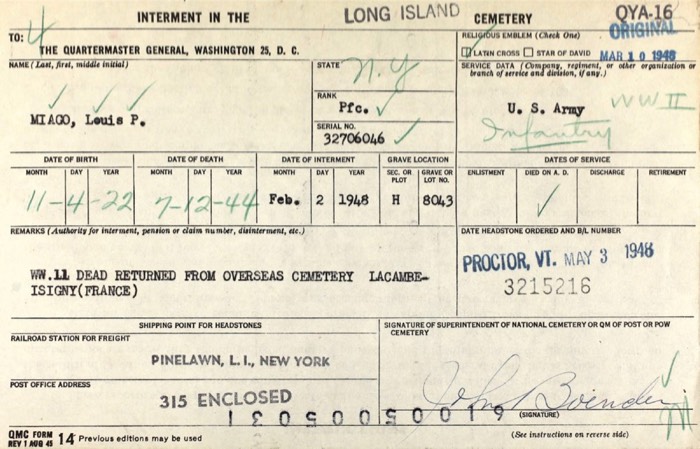 INTERMENT IN THE LONG ISLAND CEMETERY
QYA-16
ORIGINAL
TO: 4
THE QUARTERMASTER GENERAL, WASHINGTON 25, D. C.
RELIGIOUS EMBLEM (Check One)
LATIN CROSS STAR OF DAVID
MAR 10 1948
NAME (Last, first, middle initial)
MIAGO, Louis P.
STATE
N.Y
RANK
Pfc.
SERIAL NO.
32706046
SERVICE DATA (Company, regiment, or other organization or
branch of service and division, if any.)
U. S. Army
WW II
Infantry
DATE OF BIRTH DATE OF DEATH DATE OF INTERMENT GRAVE LOCATION DATES OF SERVICE
MONTH DAY YEAR MONTH DAY YEAR MONTH DAY YEAR SEC. OR PLOT GRAVE OR LOT NO. ENLISTMENT DIED ON A. D. DISCHARGE RETIREMENT
11-4-22 7-12-44 Feb. 2 1948 H 8043
REMARKS (Authority for interment, pension or claim number, disinterment, etc.)
WW.11 DEAD RETURNED FROM OVERSEAS CEMETERY LACAMBE-
ISIGNY(FRANCE)
DATE HEADSTONE ORDERED AND B/L NUMBER
PROCTOR, VT. MAY 3 1948
3215216
SHIPPING POINT FOR HEADSTONES
RAILROAD STATION FOR FREIGHT
PINELAWN, L. I., NEW YORK
POST OFFICE ADDRESS
315 ENCLOSED
SIGNATURE OF SUPERINTENDENT OF NATIONAL CEMETERY OR QM OF POST OR POW
CEMETERY
John Boender
(SIGNATURE)
(See instructions on reverse side)
QMC FORM
REV 1 AUG 45 14 Previous editions may be used